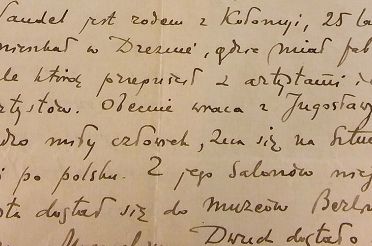 Mandel jest rodem z Kołomyji, 25 la
mieszkał w Dreźnie, gdzie miał fab
ale którą przepuścił z artystami i
artystów. Obecnie wraca z Jugosławj
miły człowiek, zna się na sztuc
po polsku. Z jego salonów nie
dostał się do muzeów Berl
Dwuch dostało